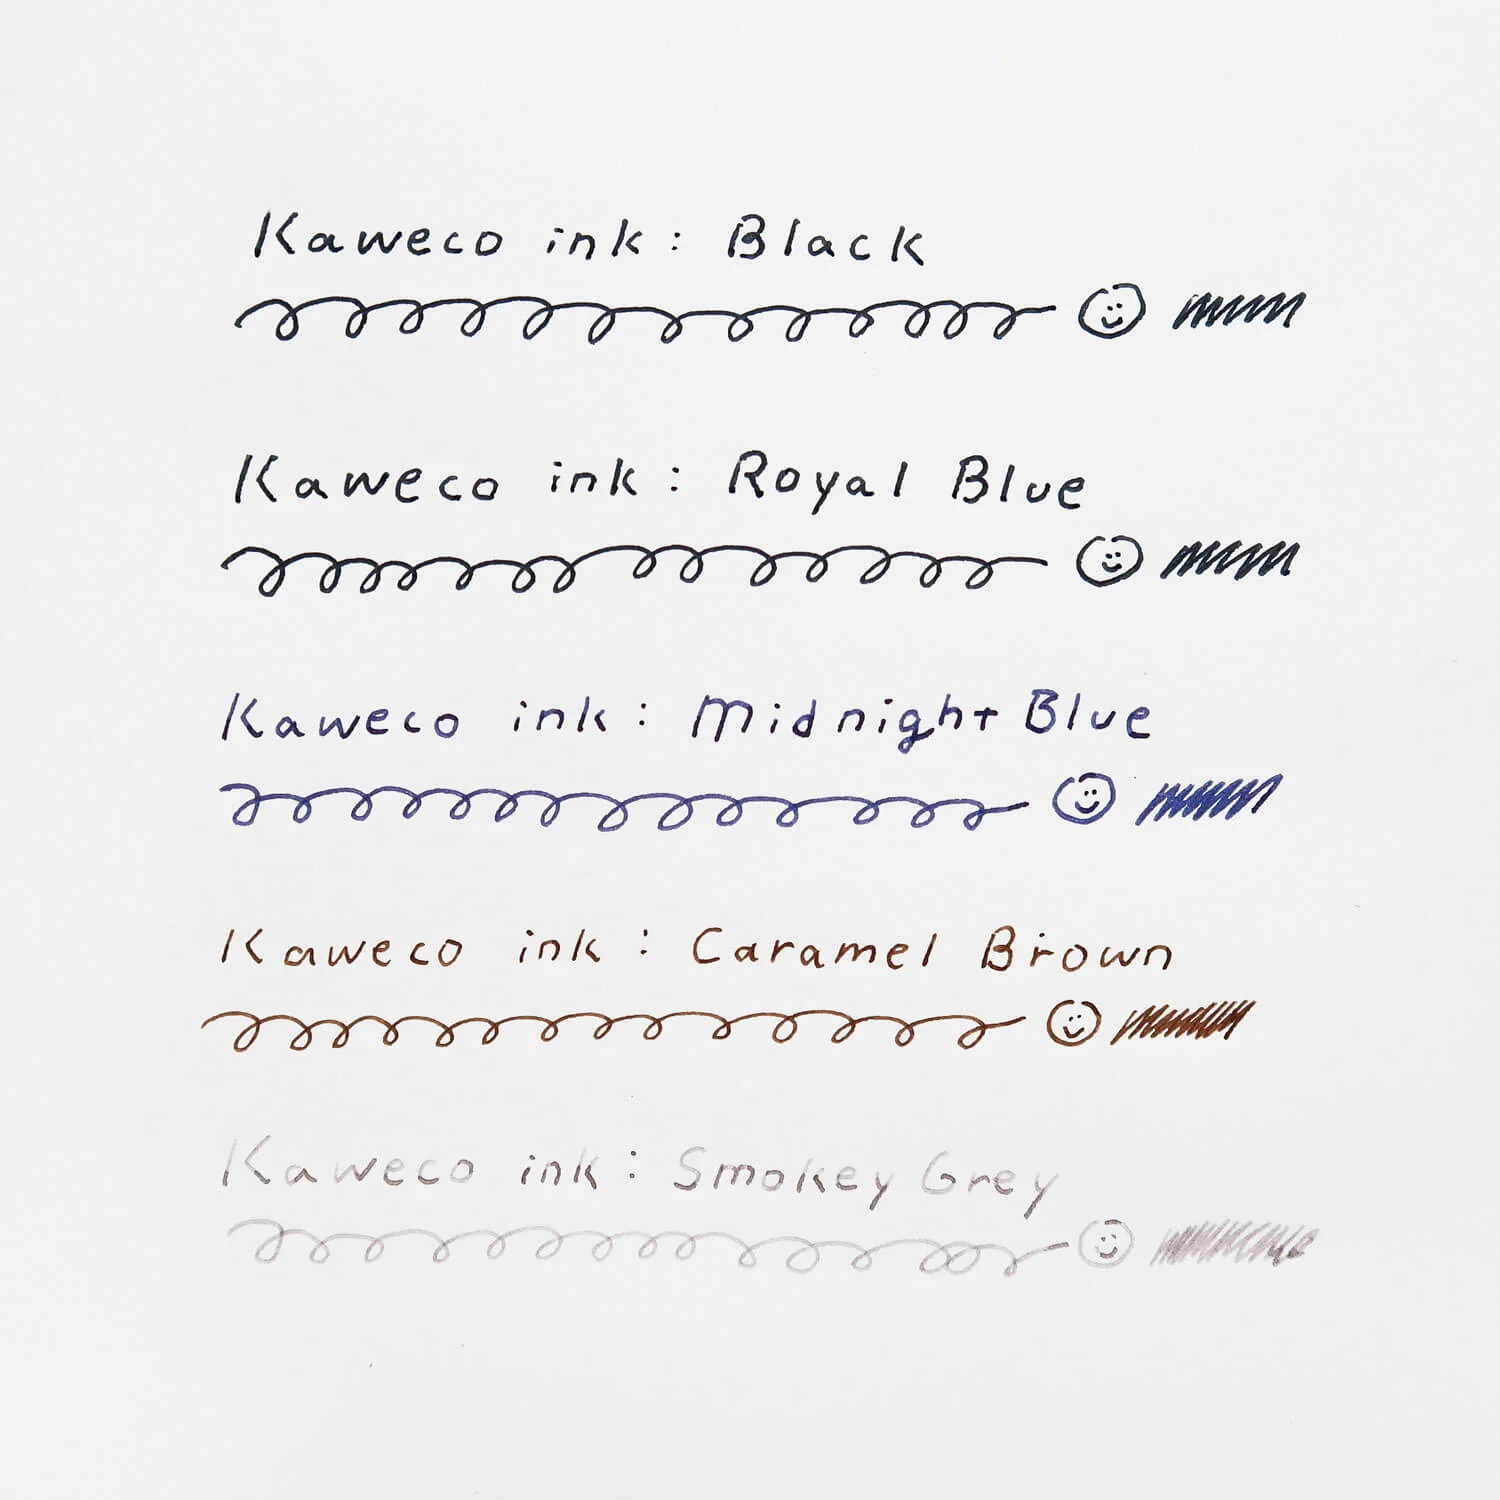 Kaweco ink: Black
Kaweco ink: Royal Blue
Kaweco ink: Midnight Blue
Kaweco ink: Caramel Brown
Kaweco ink: Smokey Grey